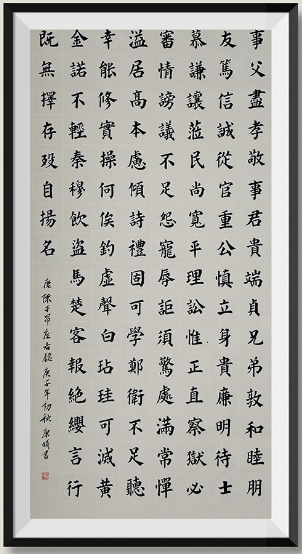 事父盡孝敬事君貴端貞兄弟敦和睦朋
友篤信誠從官重公慎立身貴廉明待士
慕謙讓蒞民尚寬平理訟惟正直察獄必
審情謗議不足怨寵辱詎須驚處滿常憚
溢居髙本慮傾詩禮固可學鄭衛不足聽
幸能修實操何俟釣虛聲白玷珪可滅黃
金諾不輕秦穆飲盜馬楚客報絕纓言行
既無擇存殁自揚名
唐陳子昂座右銘庚子年初秋書